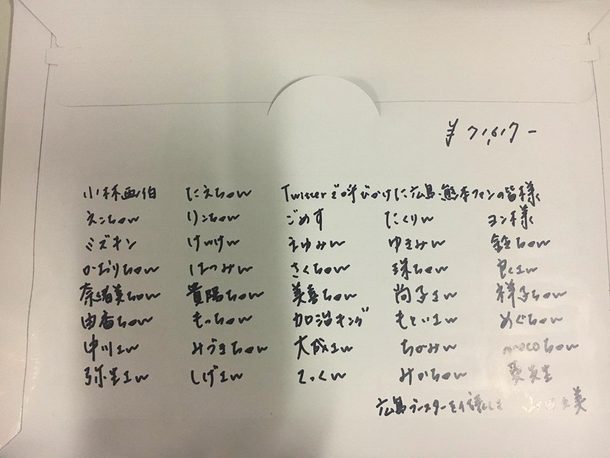 ¥ 71,617-
小林画伯 たえちゃん Twitterで呼びかけた広島熊本ファンの皆様
えこちゃん りっちゃん ごめす たくりん ヨン様
ミズキン けいけ えゆみん ゆきみん ちゃん
かおりちゃん はつみん さくちゃん 珠ちゃん
奈緒美ちゃん 貴陽ちゃん 美喜ちゃん 尚子さん 祥子ちゃん
由香ちゃん もっちゃん 加治キング もといさん めぐちゃん
中川さん みゆきちゃん 大成さん ちかみん mocoちゃん
弥生さん しげさん てっくん みかちゃん
広島